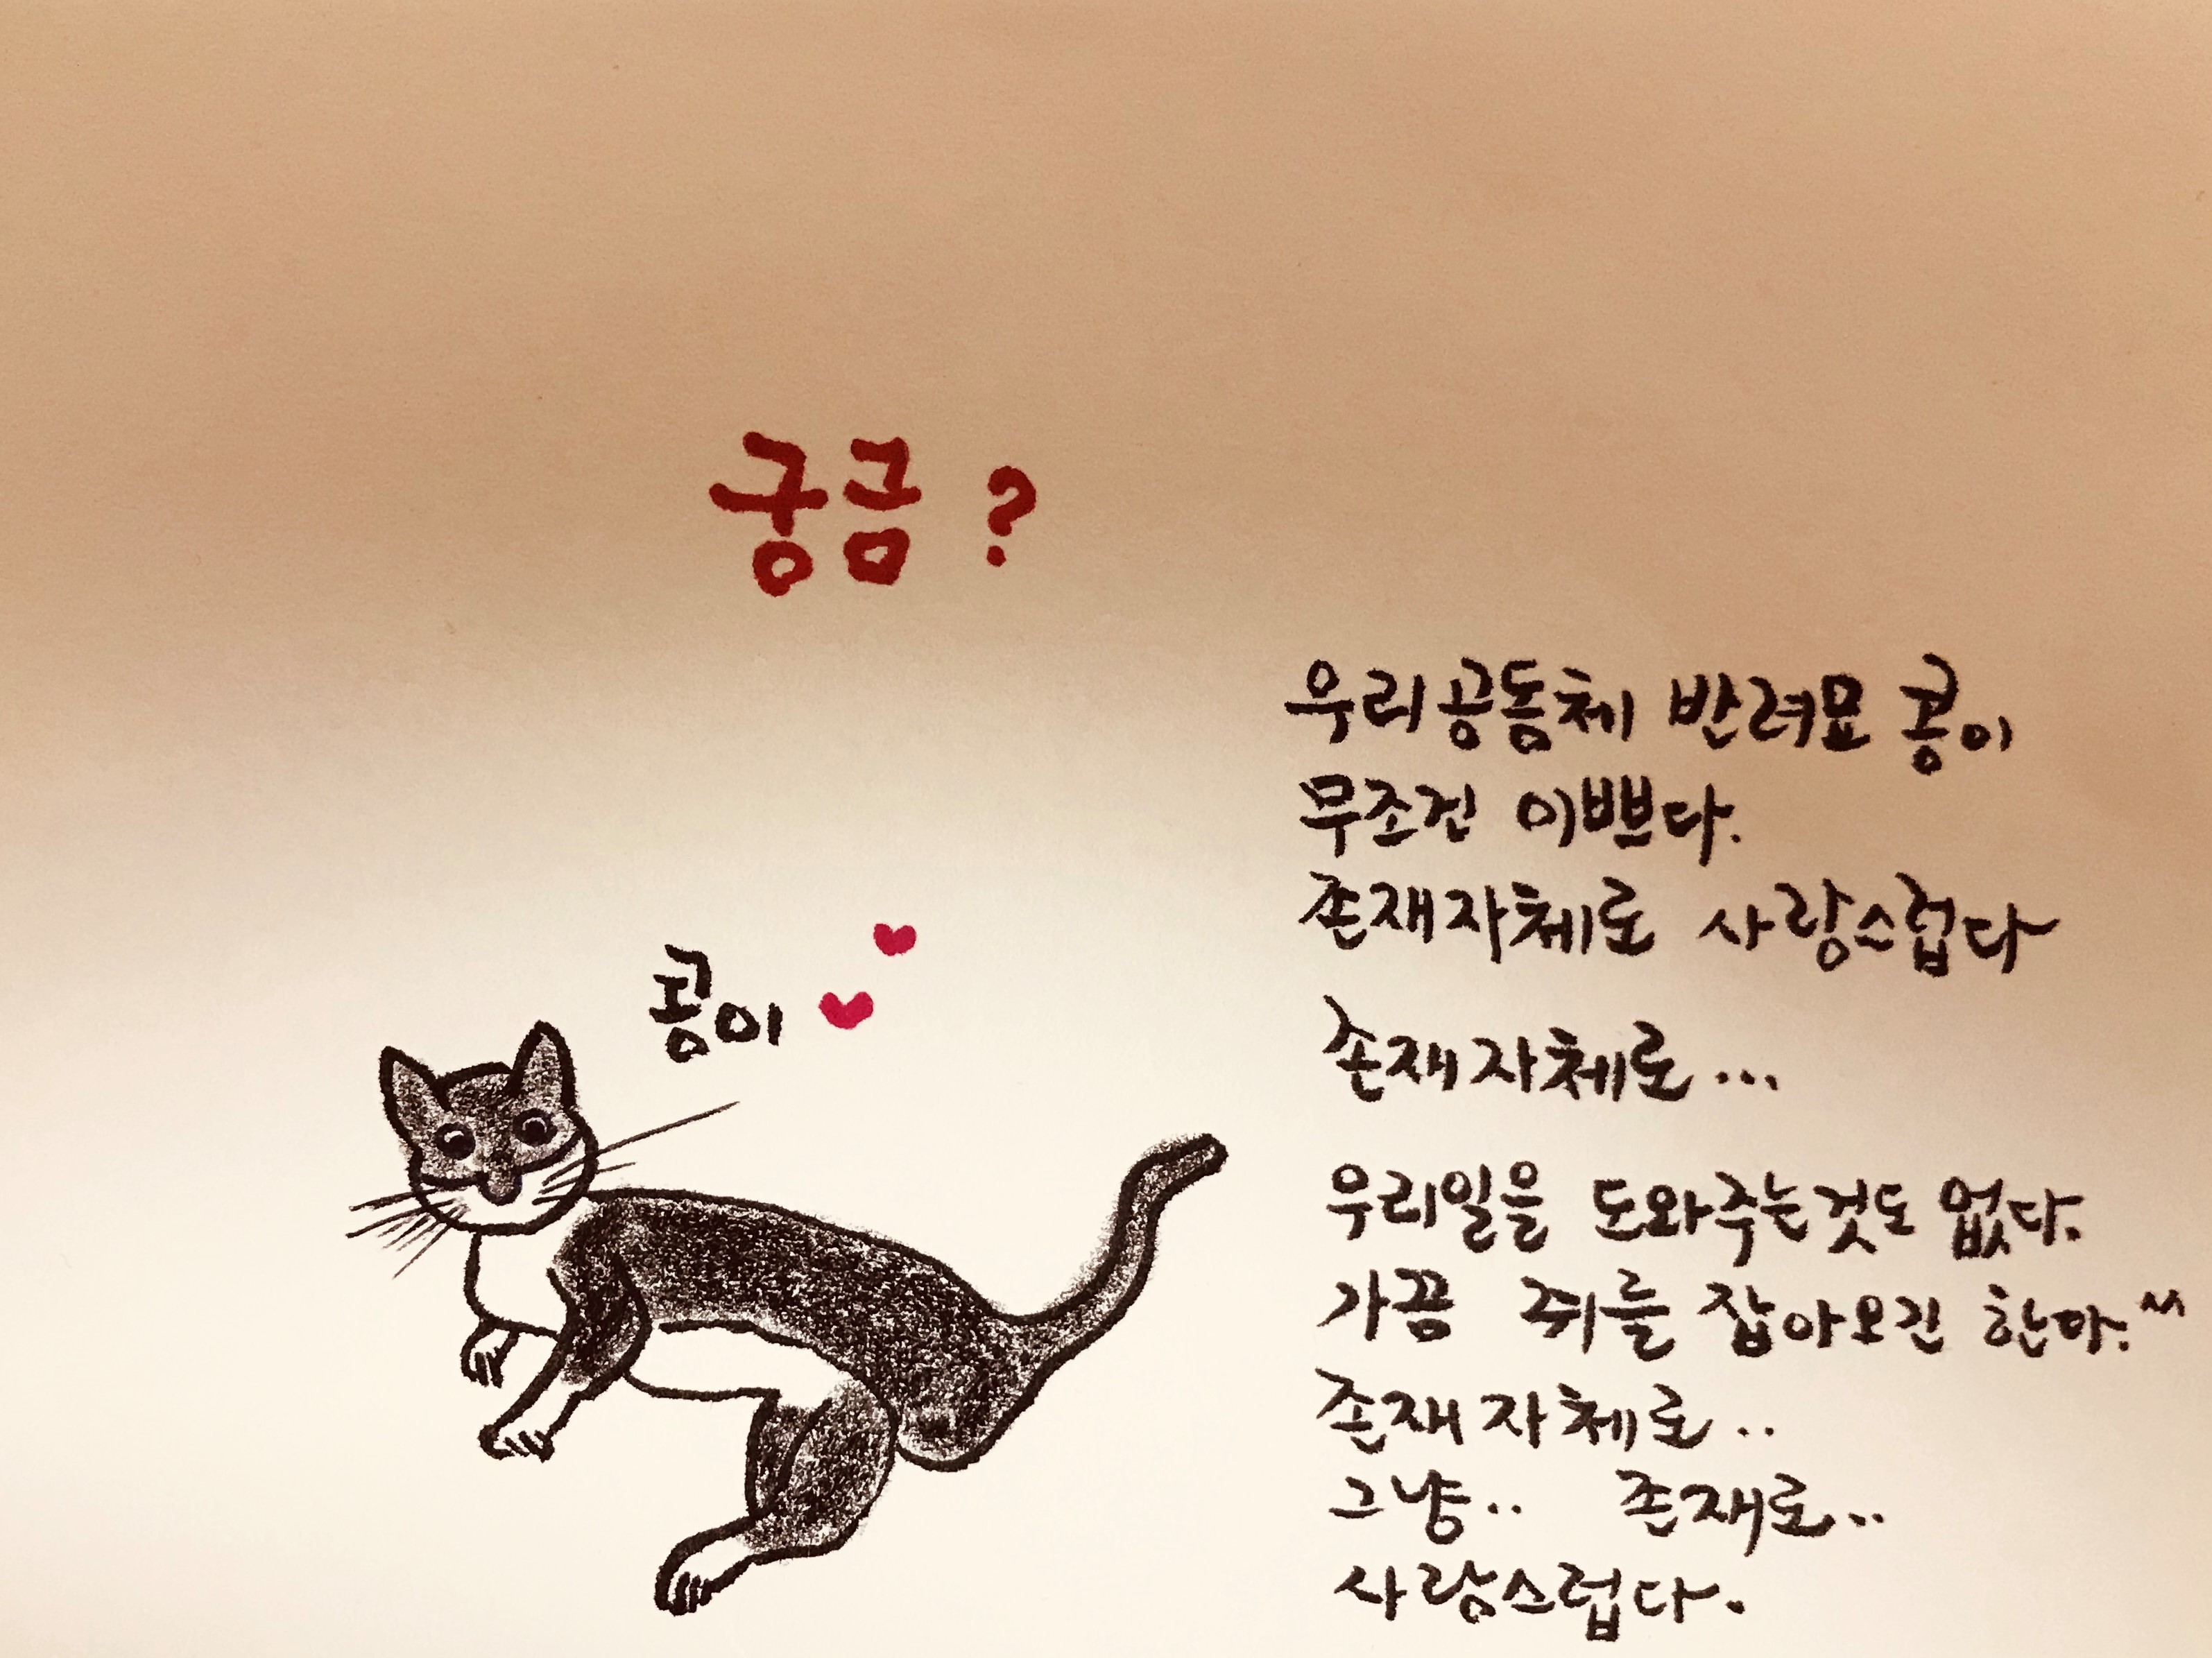 궁금?
우리공동체 반려묘 콩이
무조건 이쁘다.
존재자체로 사랑스럽다
콩이
존재자체로...
우리일을 도와주는것도 없다.
가끔 쥐를 잡아오긴 한다.^^
존재자체로..
그냥.. 존재로..
사랑스럽다.